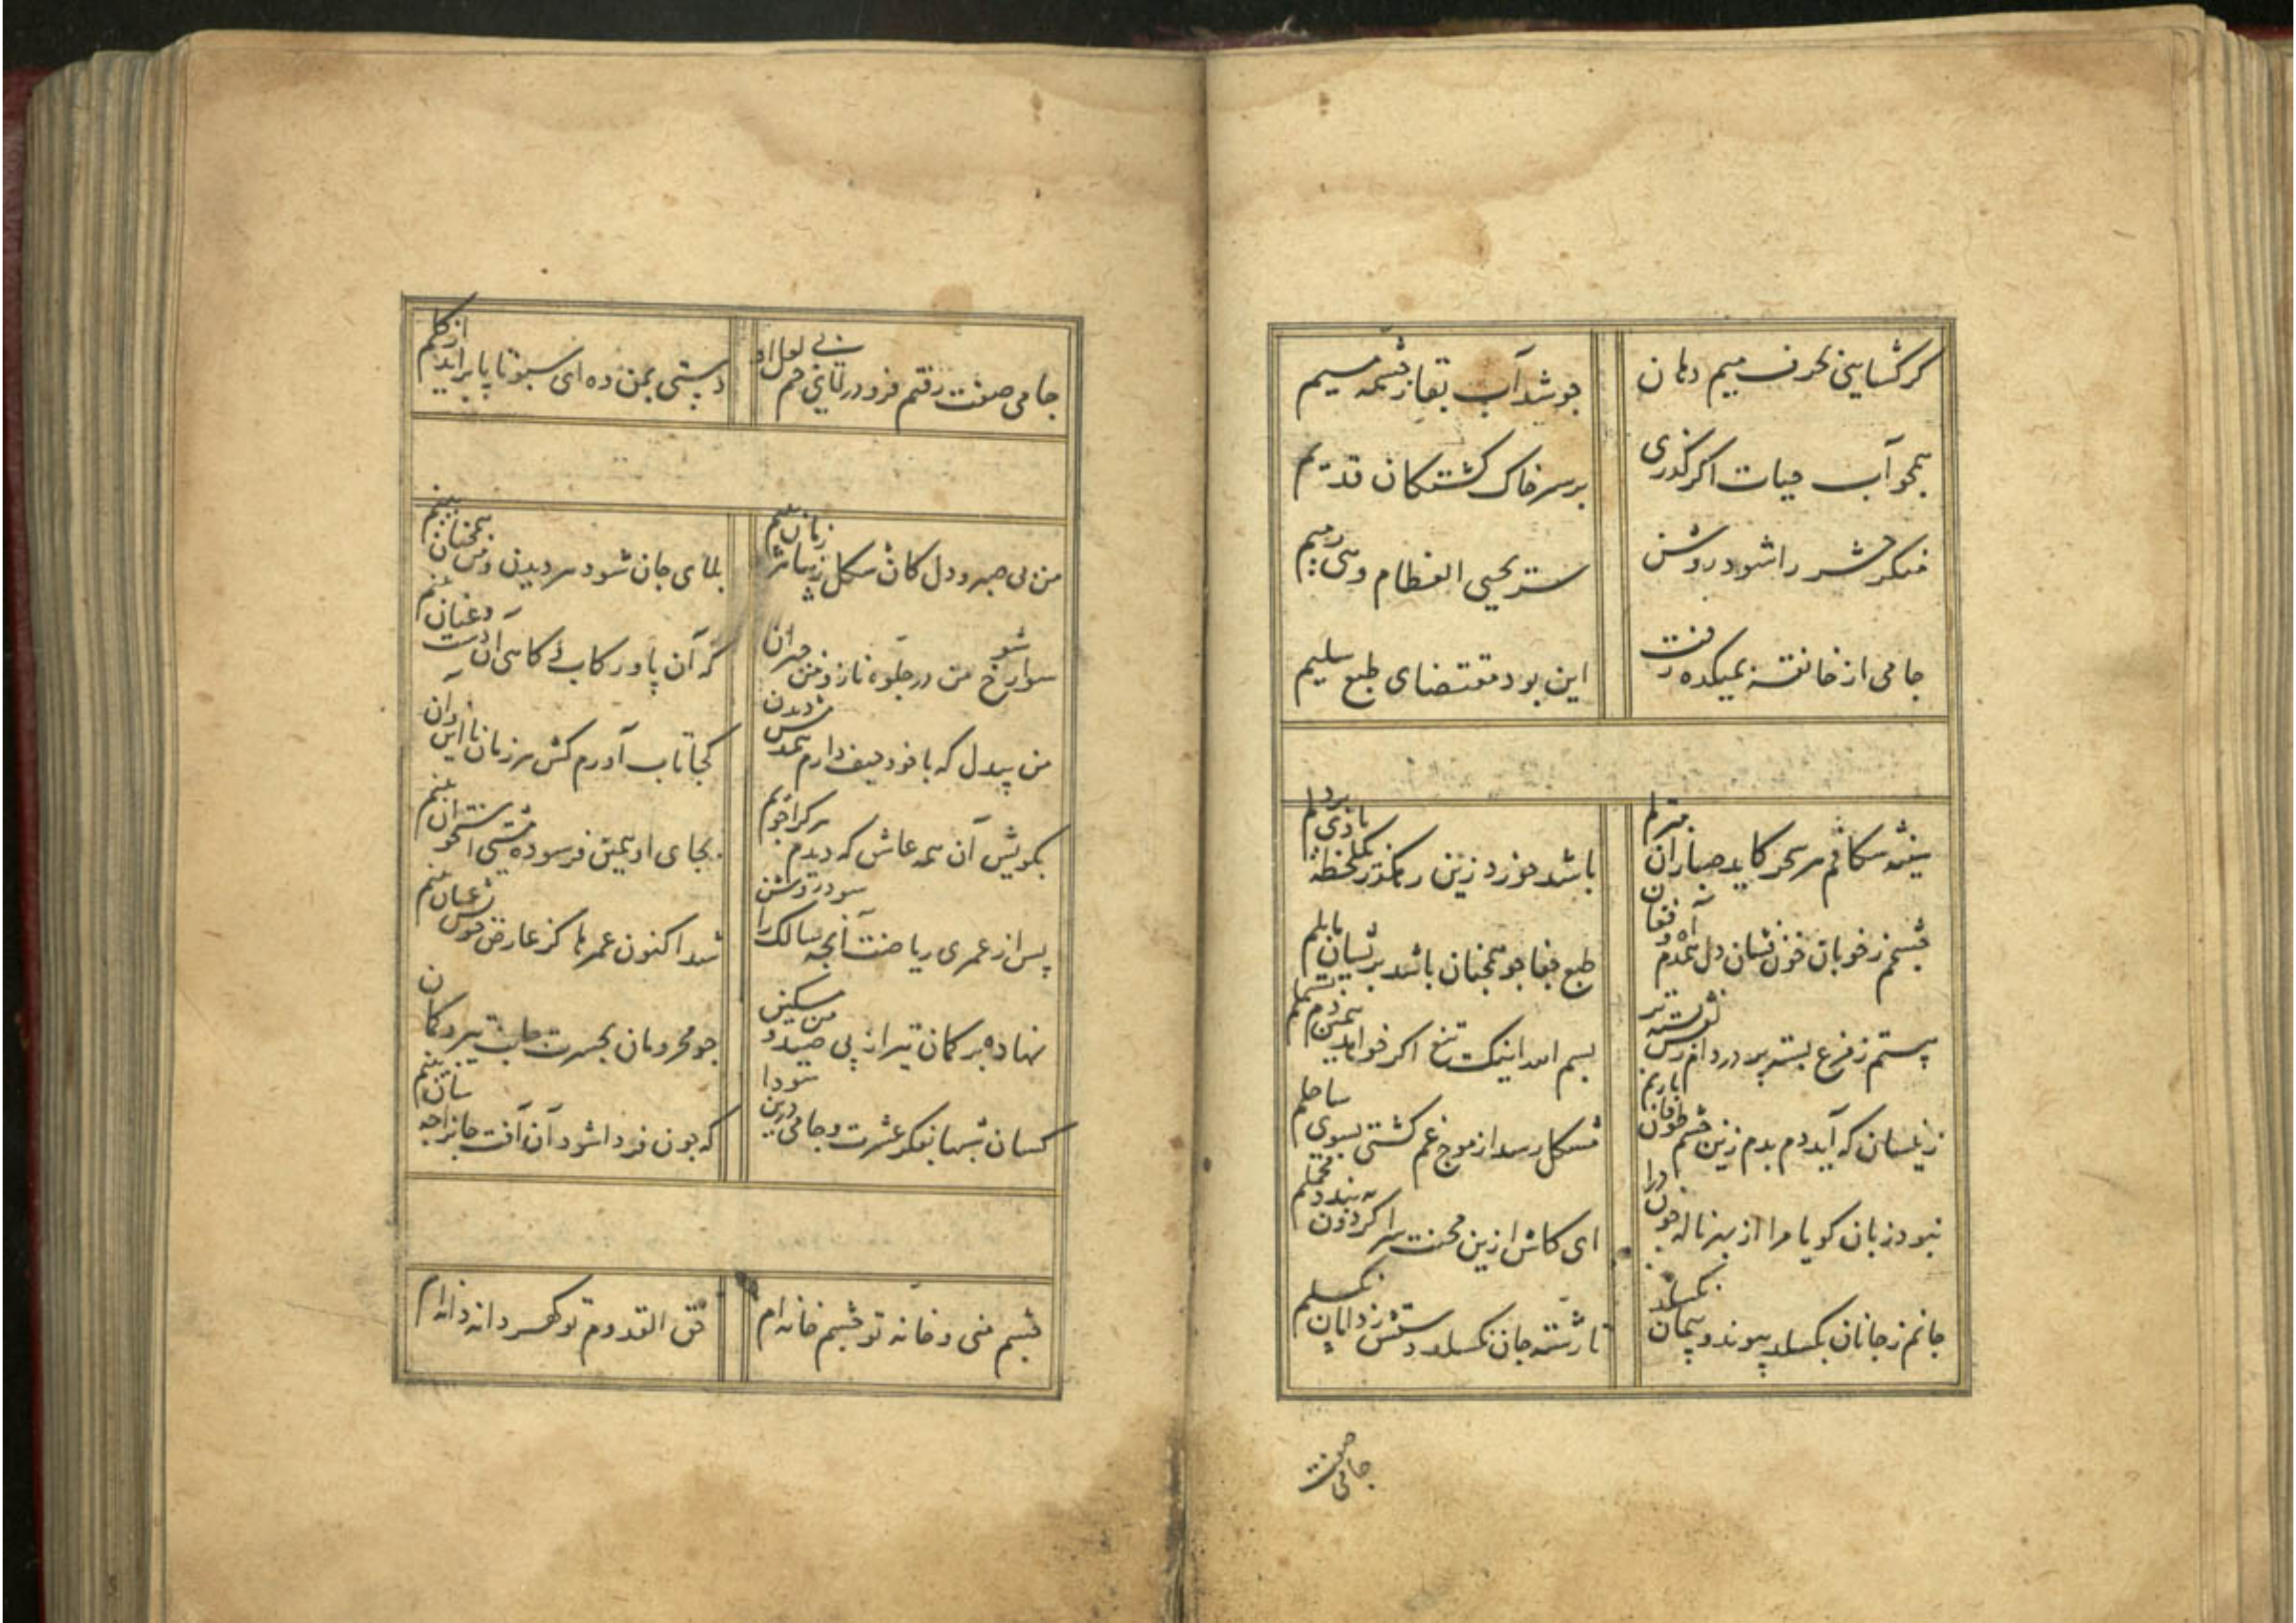 گر گشایی بحرف میم دهان
جوشد آب بقا ز چشمه میم
همچو آب حیات اگر گذری
بر سر خاک کشتگان قدیم
منکر حشر را شود روشن
سر یحیی العظام و هی رمیم
جامی از خانقه بمیکده رفت
این بود مقتضای طبع سلیم
هر سحر کاید صبا زان
باشد خورد زین رهگذر یکلحظه
چشمم ز خوبان خون فشان دل همدم آه و فغان
طبع جفا جو همچنان باشد بریشان مایلم
بسم الله اینک تیغ اگر خواهد
زینسان که آید دم بدم زین چشم طوفان بارنم
مشکل رسد از موج غم کشتی بسوی ساحلم
نبود زبان گویا مرا از بهر ناله چون درا
ای کاش ازین محنت سرا گردون به بندد محملم
جانم ز جانان بگسلد پیوند و پیمان نگسلد
تا رشته جان نگسلد دستش ز دامان نگسلم
جامی صفت
جامی صفت رفتم فرو در لای خم بی لعل او
دستی بمن ده ای سبو تا پا برآید از گلم
من بی صبر و دل کان شکل زیبا هر زمان بینم
بلای جان شود هر دیدن و من همچنان بینم
سوار شوخ من در جلوه ناز و من حیران
که آن پا در رکاب و گاهی آن دست و عنان بینم
من بیدل که با خود حیف دارم همدمش دیدن
کجا تاب آورم کش هر زمان با این و آن بینم
بکویش آن همه عاشق که دیدم هر کرا جویم
بجای او همین فرسوده مشتی استخوان بینم
پس از عمری ریاضت آنچه سالک را شود روشن
شد اکنون عمرها کز عارض خوبش عیان بینم
نهاده بر کمان تیر از پی صید و من مسکین
چو محرومان بحسرت جانب تیر و کمان بینم
کسان شبها بفکر عشرت و جامی درین سودا
که چون فردا شود آن آفت جانرا چه سان بینم
چشم منی و خانه تو چشم خانه ام
حق القدوم تو گهر دانه دانه ام